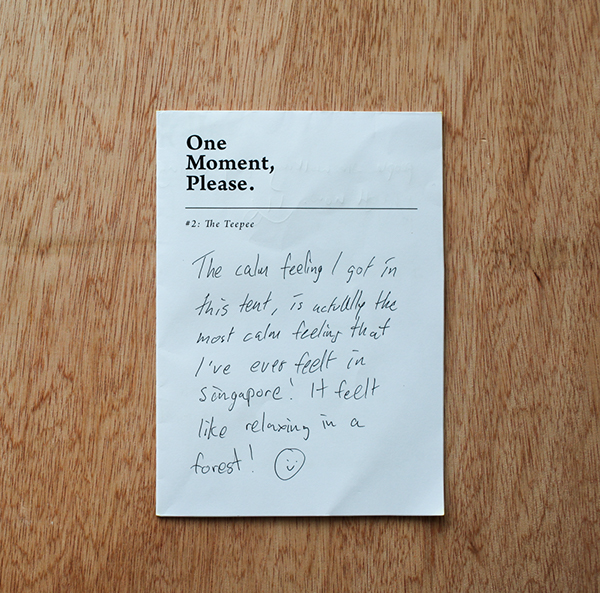 One
Moment,
Please.
#2: The Teepee
The calm feeling I got in
this tent, is actually the
most calm feeling that
I've ever feelt in
Singapore! It feelt
like relaxing in a
forest!